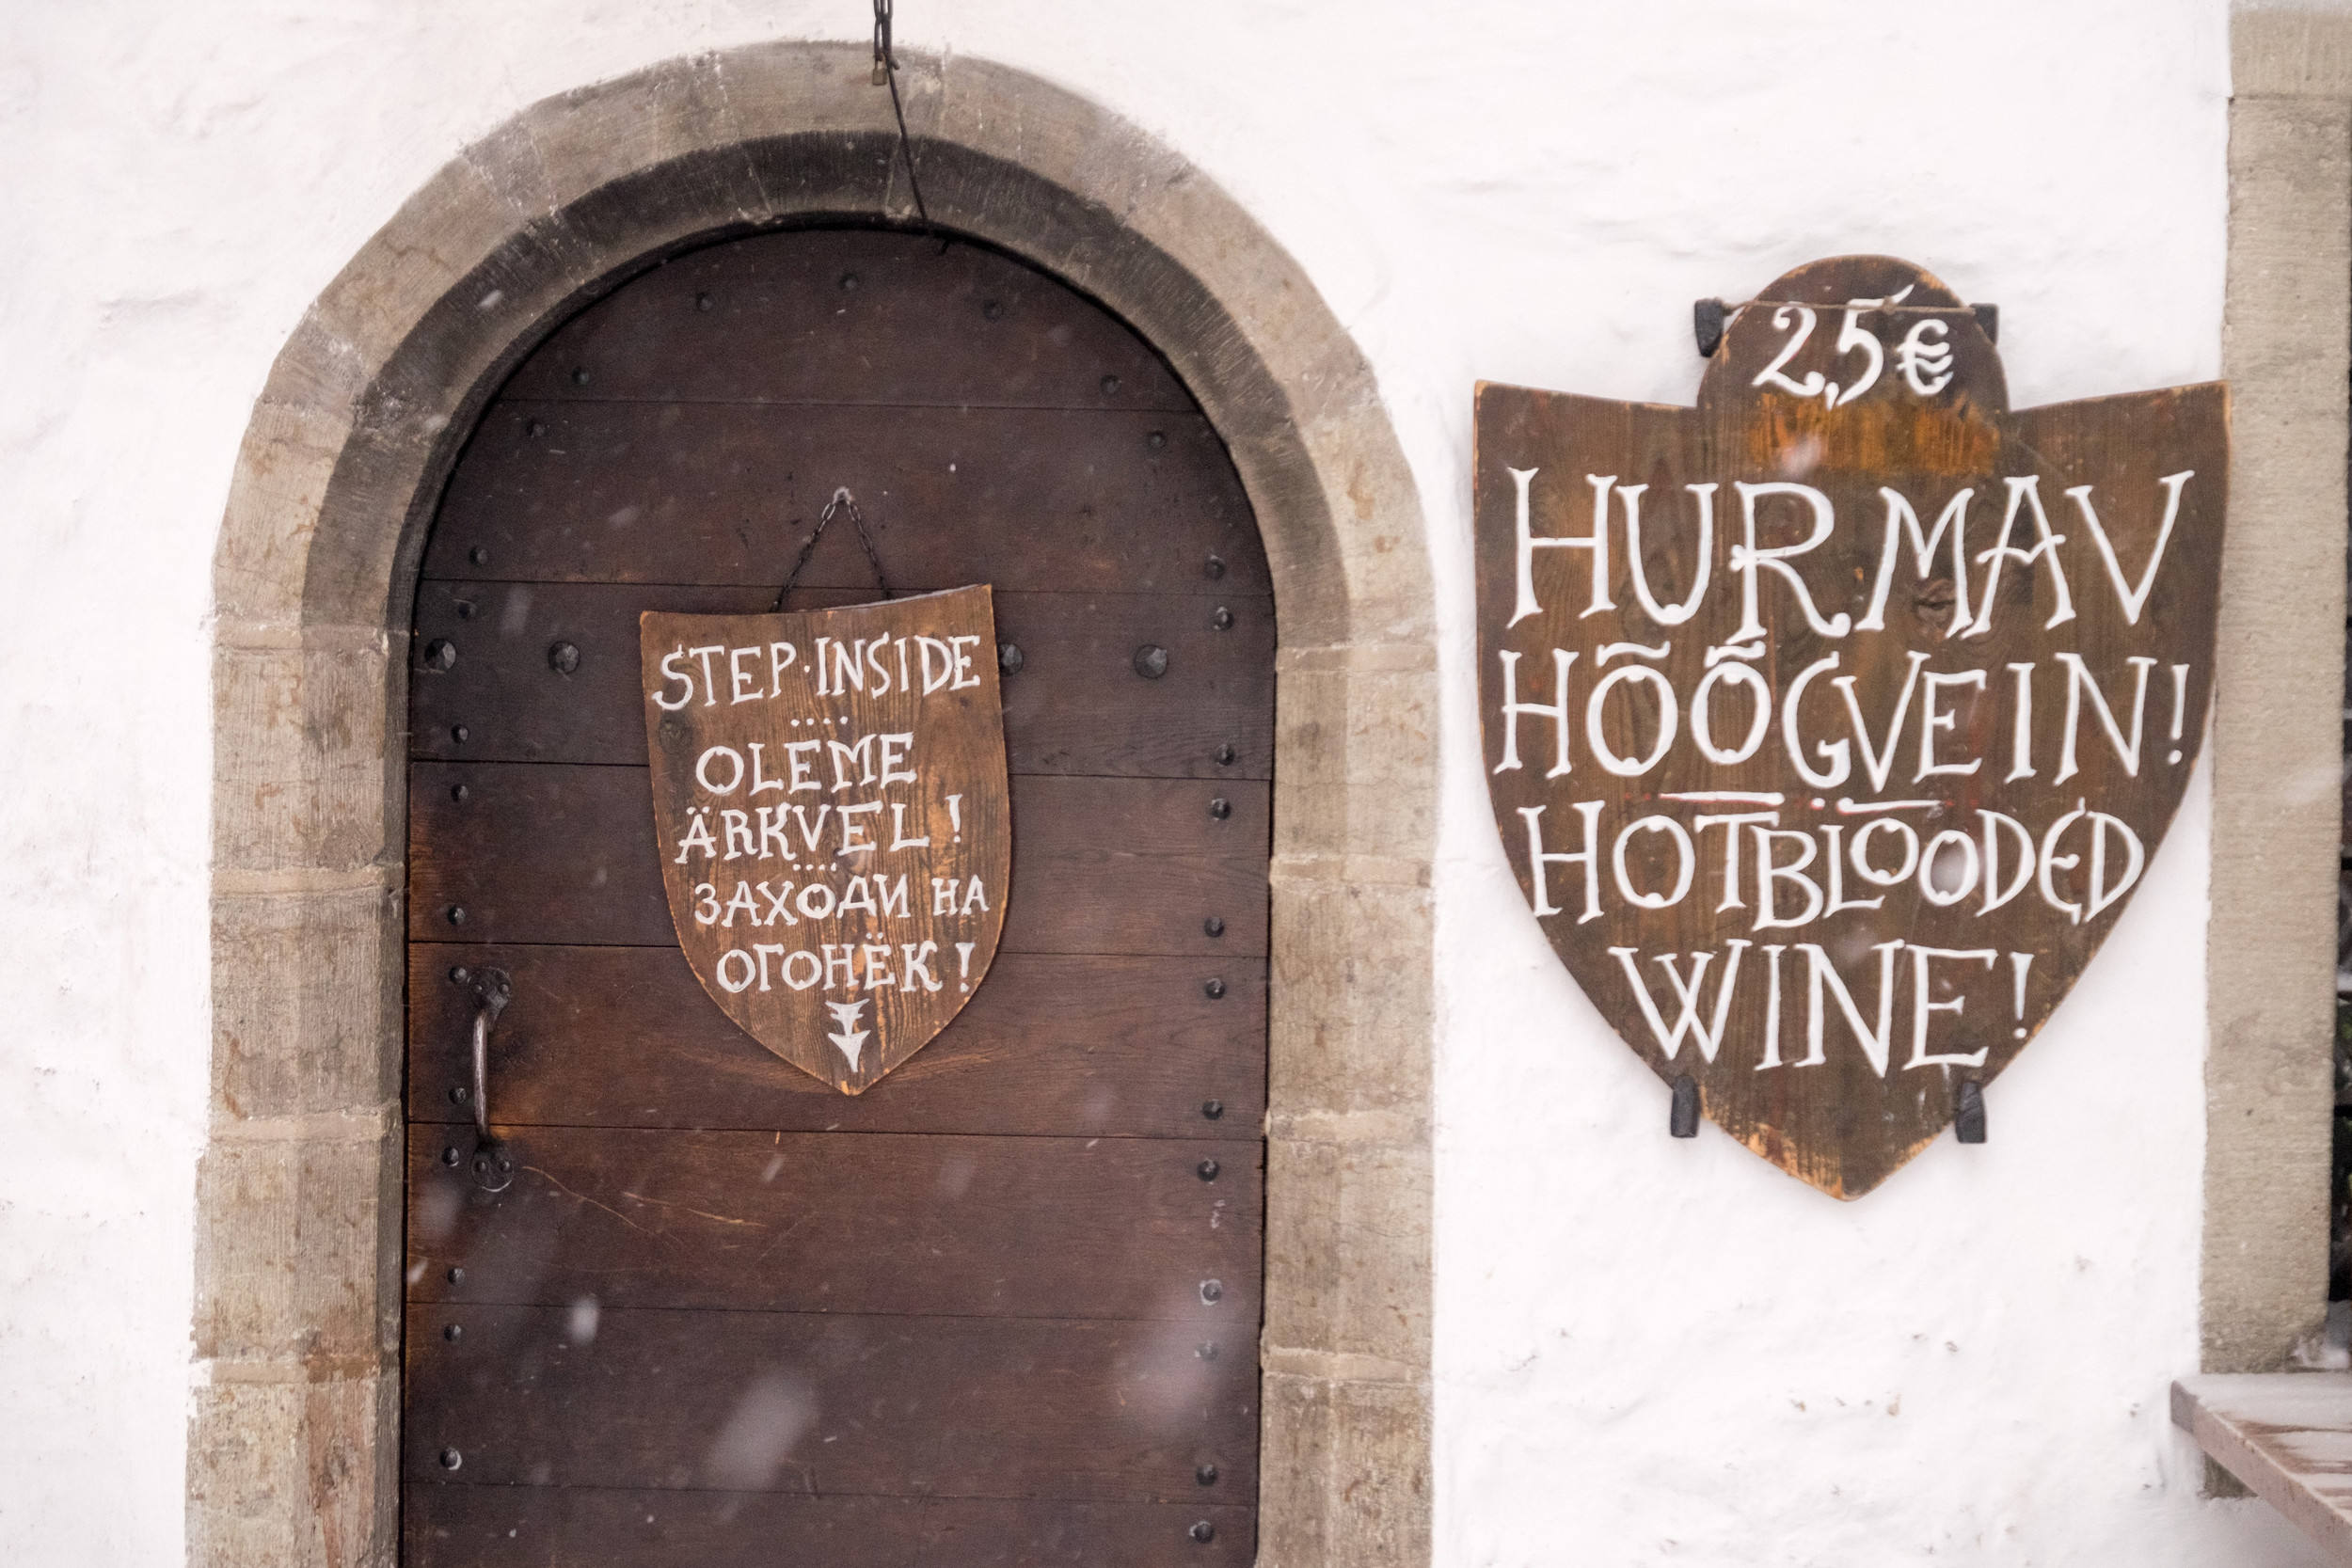 STEP·INSIDE
OLEME
ÄRKVEL!
ЗАХОДИ НА
ОГОНЁК!
2,5€
HURMAV
HÕÕGVEIN!
HOTBLOODED
WINE!